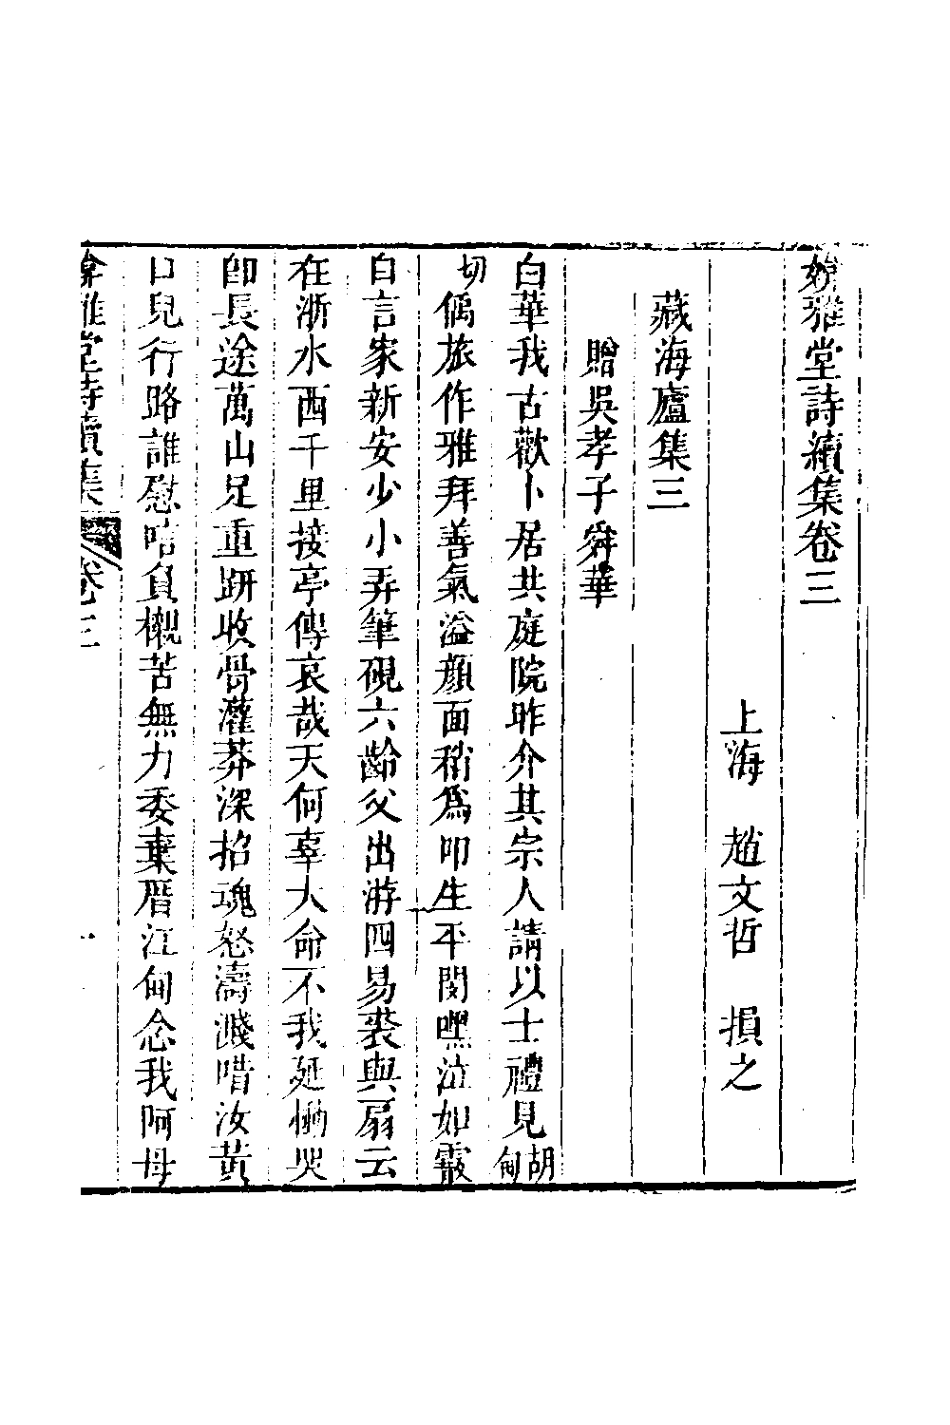 媕雅堂詩續集卷三
上海 趙文哲 損之
藏海廬集三
贈吳孝子舜華
白華我古歡卜居共庭院昨介其宗人請以士禮見胡甸
切偶旅作雅拜善氣溢顏面稍爲叩生平閔嘿泣如霰
自言家新安少小弄筆硯六齡父出游四易裘與扇云
在浙水西千里接亭傳哀哉天何辜大命不我延慟哭
卽長途萬山足重趼收骨灌莽深招魂怒濤濺唶汝黃
口兒行路誰慰唁負櫬苦無力委棄厝江甸念我阿母
媕雅堂詩續集 卷三 一